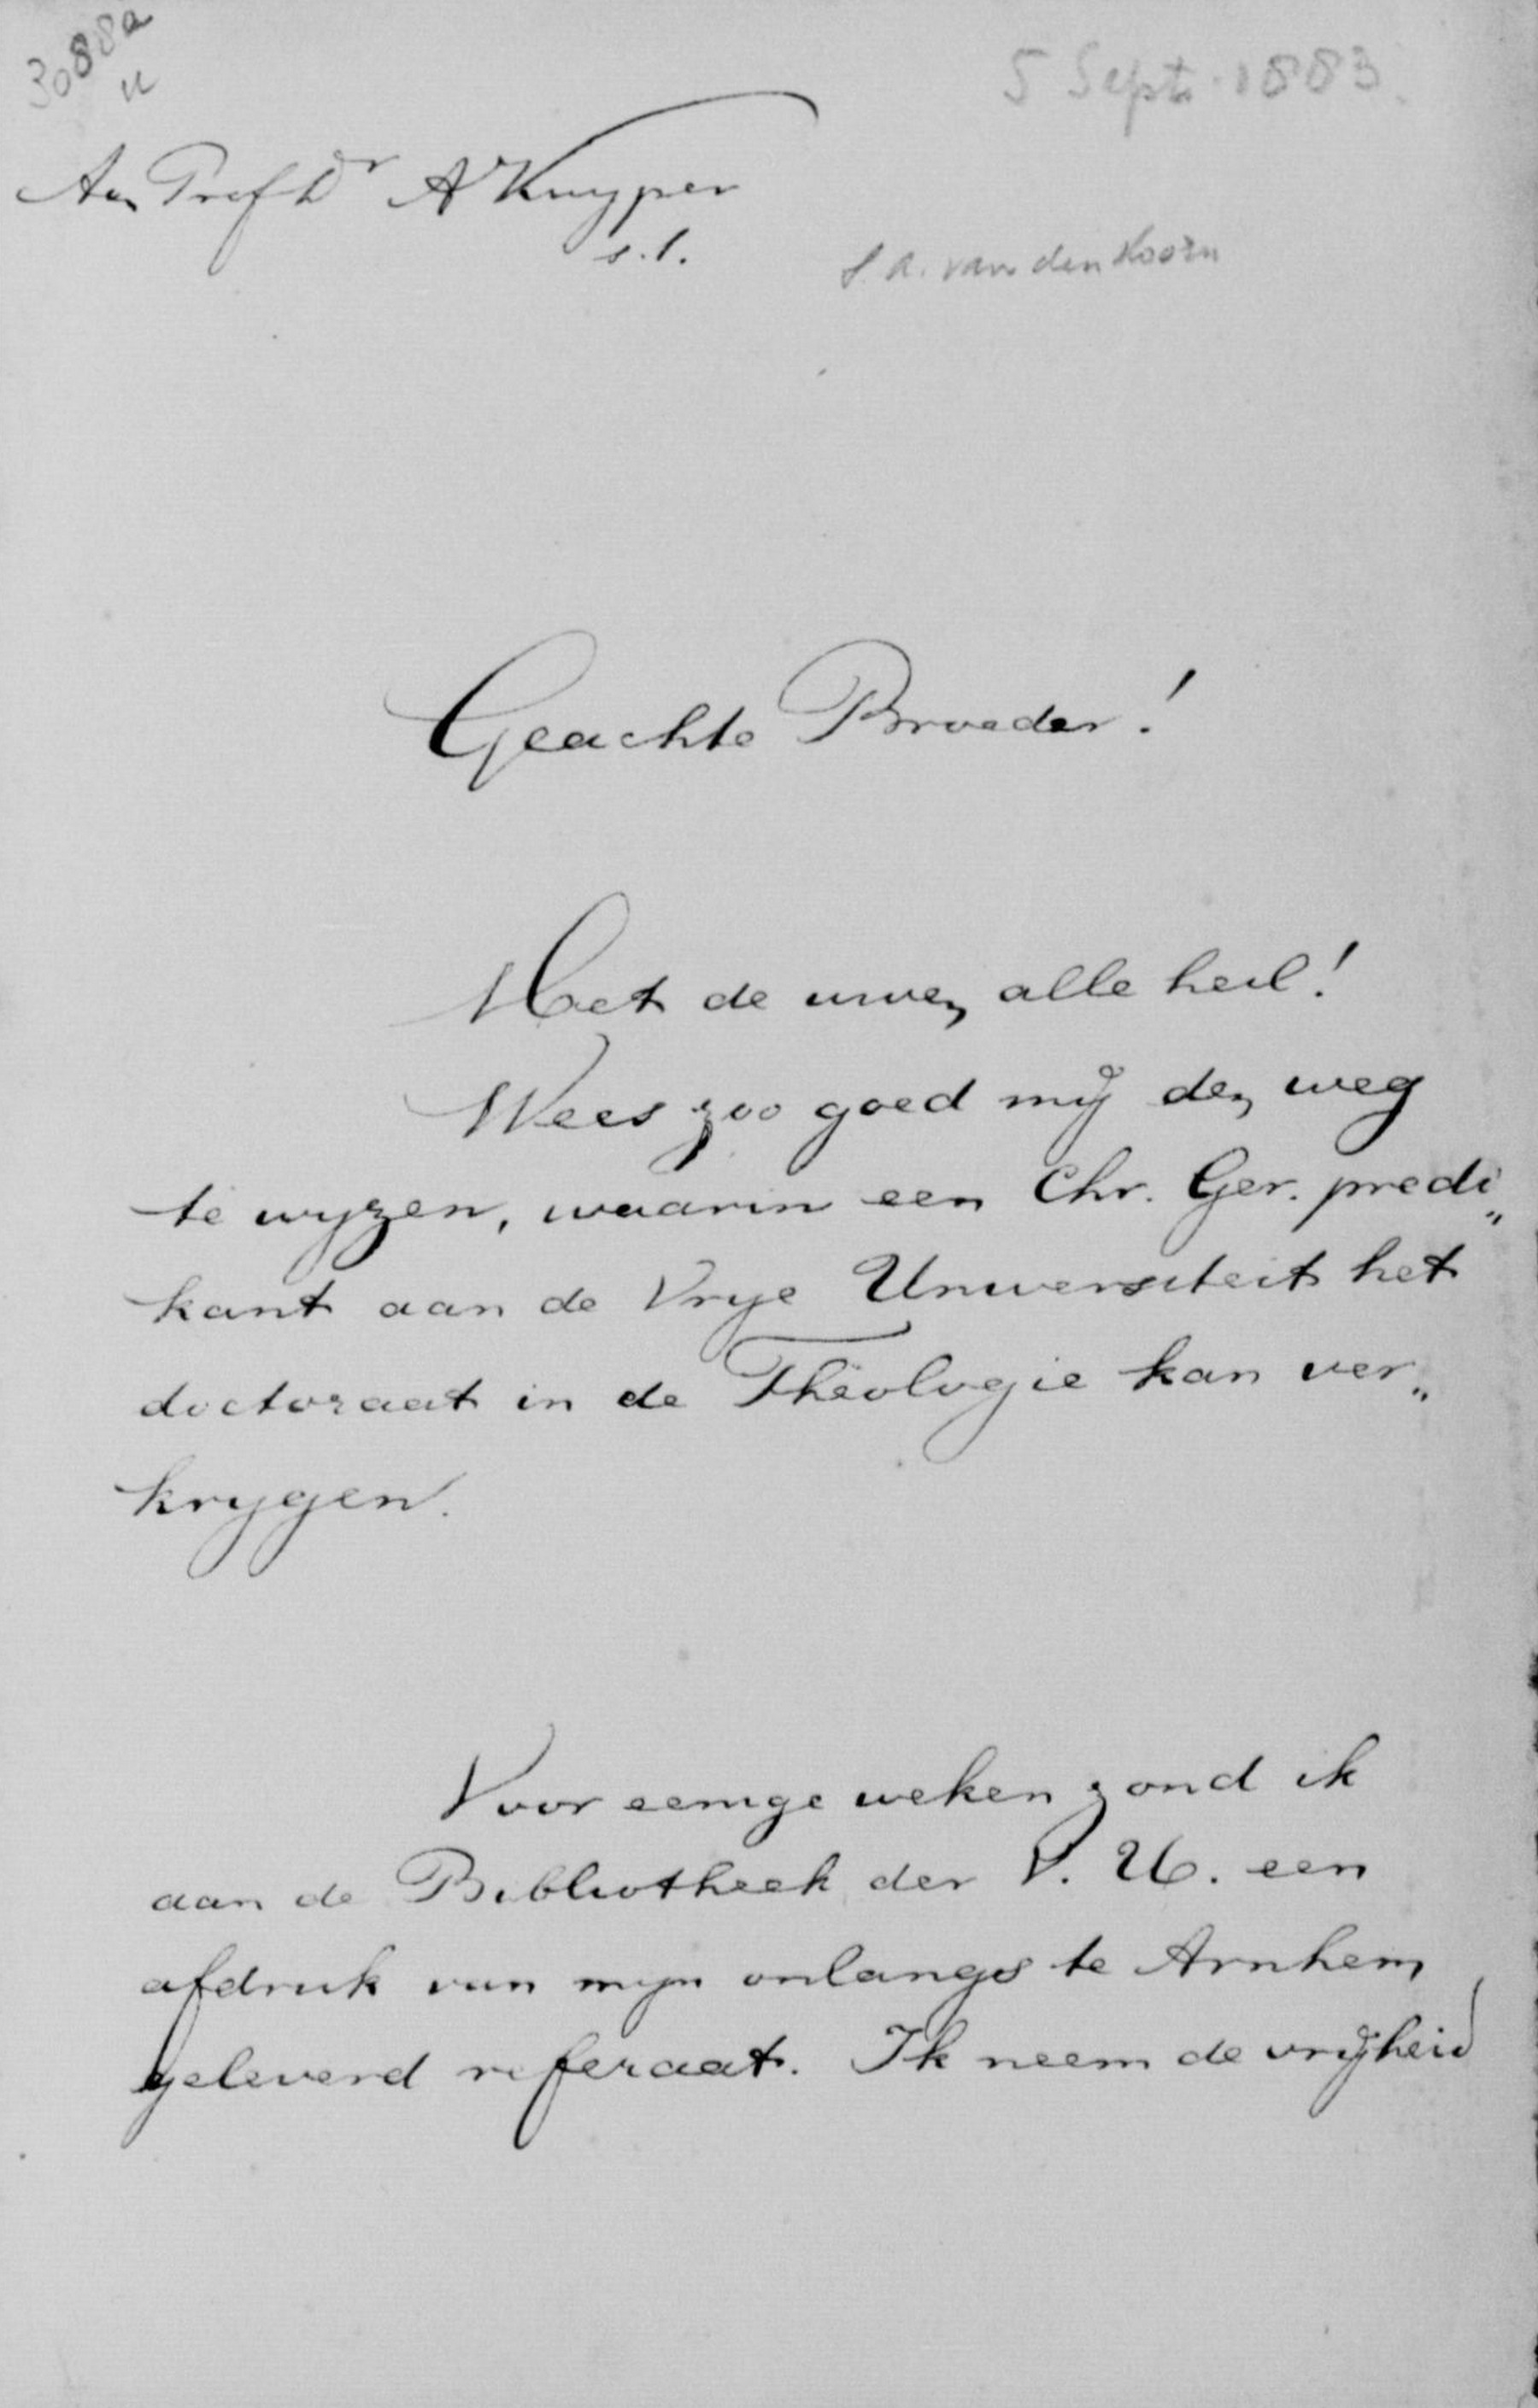 3088a
5 Sept. 1883.
Aan Prof Dr A Kuyper
s.l.
S. A. van den Hoorn
Geachte Broeder!
Met de uwen alle heil!
Wees zoo goed mij den weg
te wyzen, waarin een Chr. Ger. predi„
kant aan de Vrye Universiteit het
doctoraat in de Theologie kan ver„
krygen.
Voor eenige weken zond ik
aan de Bibliotheek der V. U. een
afdruk van myn onlangs te Arnhem
geleverd referaat. Ik neem de vrijheid